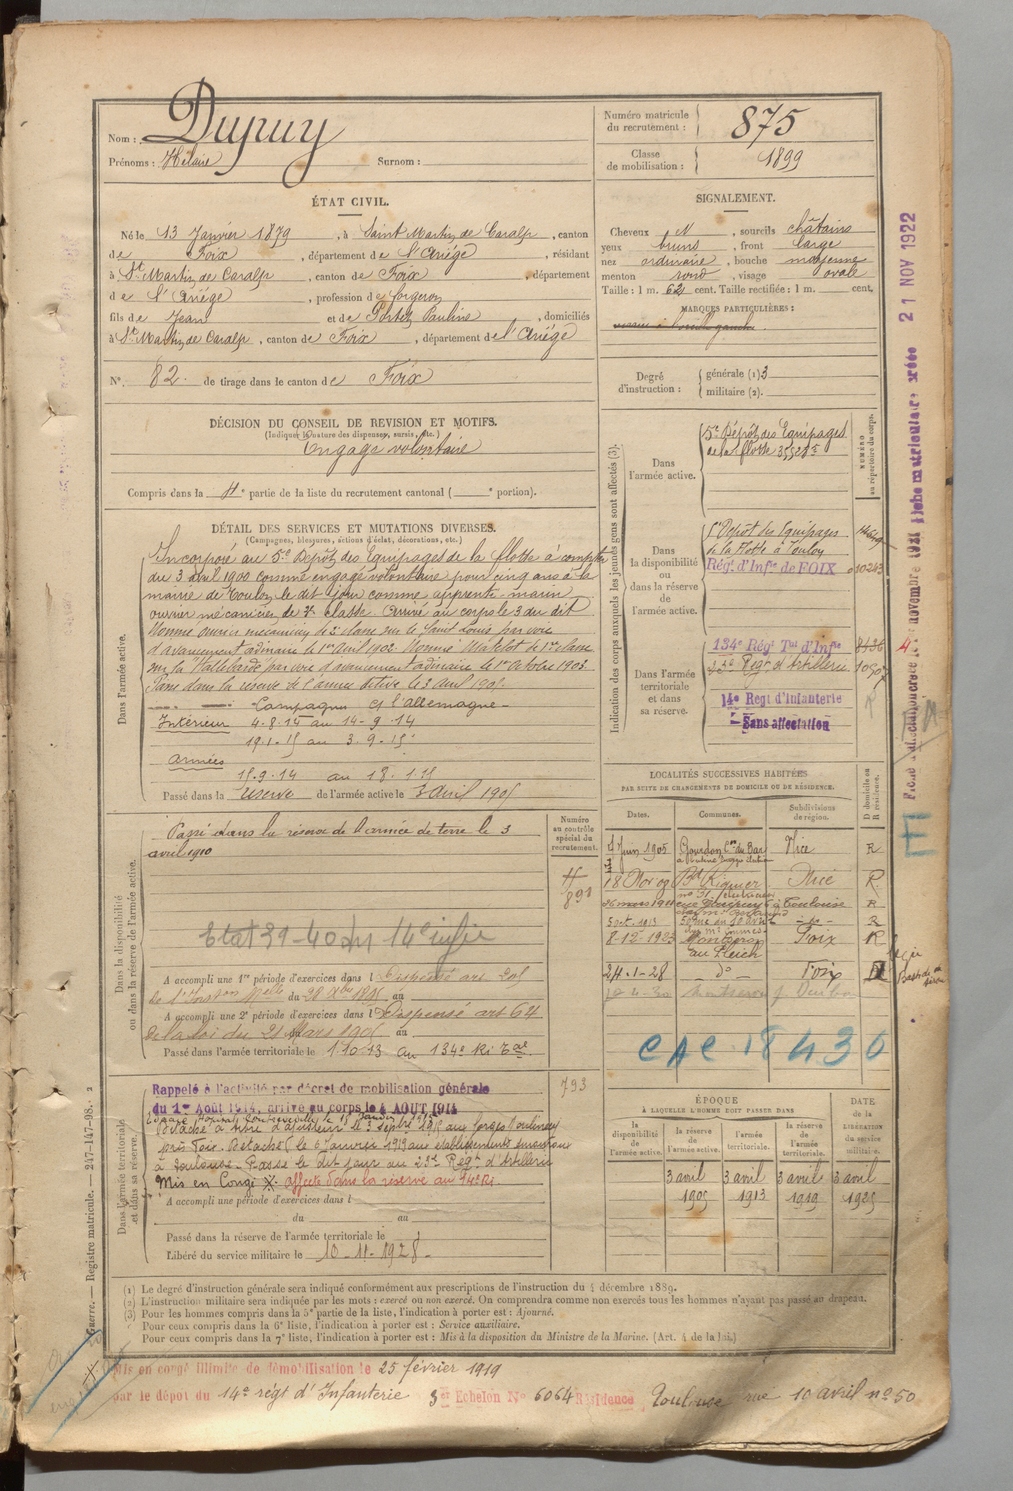 Nom : Dupuy
Prénoms : Hilaire Surnom :
Numéro matricule du recrutement : 875
Classe de mobilisation : 1899
ÉTAT CIVIL.
Né le 13 Janvier 1879, à Saint Martin de Caralp, canton
de Foix, département de l'Ariège, résidant
à St Martin de Caralp, canton de Foix, département
de l'Ariège, profession de forgeron
fils de Jean et de Portet Pauline, domiciliés
à St Martin de Caralp, canton de Foix, département de l'Ariège
N° 82 de tirage dans le canton de Foix
SIGNALEMENT.
Cheveux N, sourcils châtains
yeux bruns, front large
nez ordinaire, bouche moyenne
menton rond, visage ovale
Taille : 1 m. 62 cent. Taille rectifiée : 1 m. cent.
MARQUES PARTICULIÈRES :
Degré d'instruction : générale (1) 3
militaire (2).
DÉCISION DU CONSEIL DE REVISION ET MOTIFS.
(Indiquer la nature des dispenses, sursis, etc.)
Engagé volontaire
Compris dans la 4e partie de la liste du recrutement cantonal ( e portion).
DÉTAIL DES SERVICES ET MUTATIONS DIVERSES.
(Campagnes, blessures, actions d'éclat, décorations, etc.)
Dans l'armée active.
Incorporé au 5e Dépôt des Equipages de la flotte à compter
du 3 avril 1900 comme engagé volontaire pour cinq ans à la
mairie de Toulon le dit jour comme apprenti marin
ouvrier mécanicien de 3e classe. Arrivé au corps le 3 du dit
Nommé ouvrier mécanicien de 2e classe sur le Saint Louis par voie
d'avancement ordinaire le 1er Avril 1902. Nommé Matelot de 1re classe
sur la Hallebarde par voie d'avancement ordinaire le 1er Octobre 1903
Passé dans la réserve de l'armée active le 3 Avril 1905.
Campagne c/ l'Allemagne
Intérieur 4-8-14 au 14-9-14
19-1-15 au 3-9-15
Armées
15-9-14 au 18-1-15
Passé dans la réserve de l'armée active le 3 Avril 1905
Indication des corps auxquels les jeunes gens sont affectés (3).
NUMÉRO au répertoire du corps.
Dans l'armée active.
5e Dépôt des Equipages
de la flotte 35528-5
Dans la disponibilité ou dans la réserve de l'armée active.
5e Dépôt des Equipages
de la flotte à Toulon
Rég. d'Infie de FOIX 10243
Dans l'armée territoriale et dans sa réserve.
134e Régt Tal d'Infie
23e Regt d'Artillerie
14e Regt d'Infanterie
Sans affectation
Dans la disponibilité ou dans la réserve de l'armée active.
Passé dans la réserve de l'armée de terre le 3
avril 1910
Numéro au contrôle spécial du recrutement.
Etat 39-40 du 14e
A accompli une 1re période d'exercices dans l Dispensé art 205
du 28 Xbre 1895 au
A accompli une 2e période d'exercices dans l Dispensé art 64
de la loi du 21 Mars 1905 au
Passé dans l'armée territoriale le 1.10.13 au 134e Ri Tal
LOCALITÉS SUCCESSIVES HABITÉES
PAR SUITE DE CHANGEMENTS DE DOMICILE OU DE RÉSIDENCE.
Dates. Communes. Subdivisions de région. D domicile ou R résidence.
Juin 1905 Gourdon Con du Bar Nice R
18 Nov 09 Bd Riquier Nice R
26 mars 1911 à Toulouse R
8-12-1923 Montgros Foix R
au Pleich
24-1-28 do Foix
CAC 18430
Dans l'armée territoriale et dans sa réserve.
Rappelé à l'activité par décret de mobilisation générale
du 1er Août 1914, arrivé au corps le 4 AOUT 1914
793
près Foix. Détaché le 6 Janvier 1919 aux établissements
à Toulouse. Passé le dit jour au 23e Regt d'Artillerie
Mis en Congé X. affecté dans la réserve au 14e Ri
A accompli une période d'exercices dans l
du au
Passé dans la réserve de l'armée territoriale le
Libéré du service militaire le 10-11-1928
ÉPOQUE
À LAQUELLE L'HOMME DOIT PASSER DANS
la disponibilité de l'armée active. la réserve de l'armée active. l'armée territoriale. la réserve de l'armée territoriale. DATE de la LIBÉRATION du service militaire.
3 avril 3 avril 3 avril 3 avril
1905 1913 1919 1925
(1) Le degré d'instruction générale sera indiqué conformément aux prescriptions de l'instruction du 4 décembre 1889.
(2) L'instruction militaire sera indiquée par les mots : exercé ou non exercé. On comprendra comme non exercés tous les hommes n'ayant pas passé au drapeau.
(3) Pour les hommes compris dans la 5e partie de la liste, l'indication à porter est : Ajourné.
Pour ceux compris dans la 6e liste, l'indication à porter est : Service auxiliaire.
Pour ceux compris dans la 7e liste, l'indication à porter est : Mis à la disposition du Ministre de la Marine. (Art. 4 de la loi.)
Mis en congé illimité de démobilisation le 25 février 1919
par le dépôt du 14e régt d'Infanterie 3e Echelon N° 6064 Résidence Toulouse rue 10 avril n° 50
Guerre. — Registre matricule. — 247-147-98.
21 NOV 1922